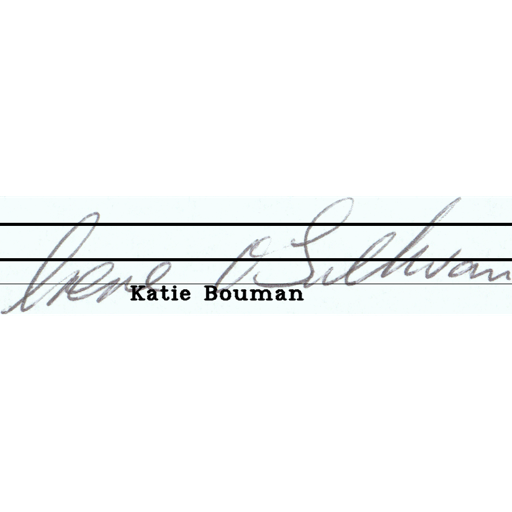 Irene O'Sullivan
Katie Bouman